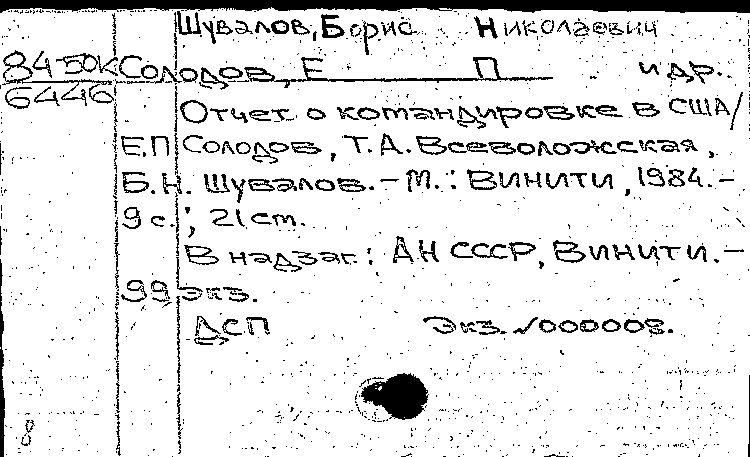 Шувалов, Борис Николаевич
84-50К Солодов, Е П и др.
6446 Отчет о командировке в США/
Е.П Солодов, Т.А. Всеволожская,
Б.Н. Шувалов. – М.: ВИНИТИ, 1984. –
9 с.; 21 cm.
В надзаг.: АН СССР, ВИНИТИ. –
99 экз.
ДСП Экз. √000008.
8